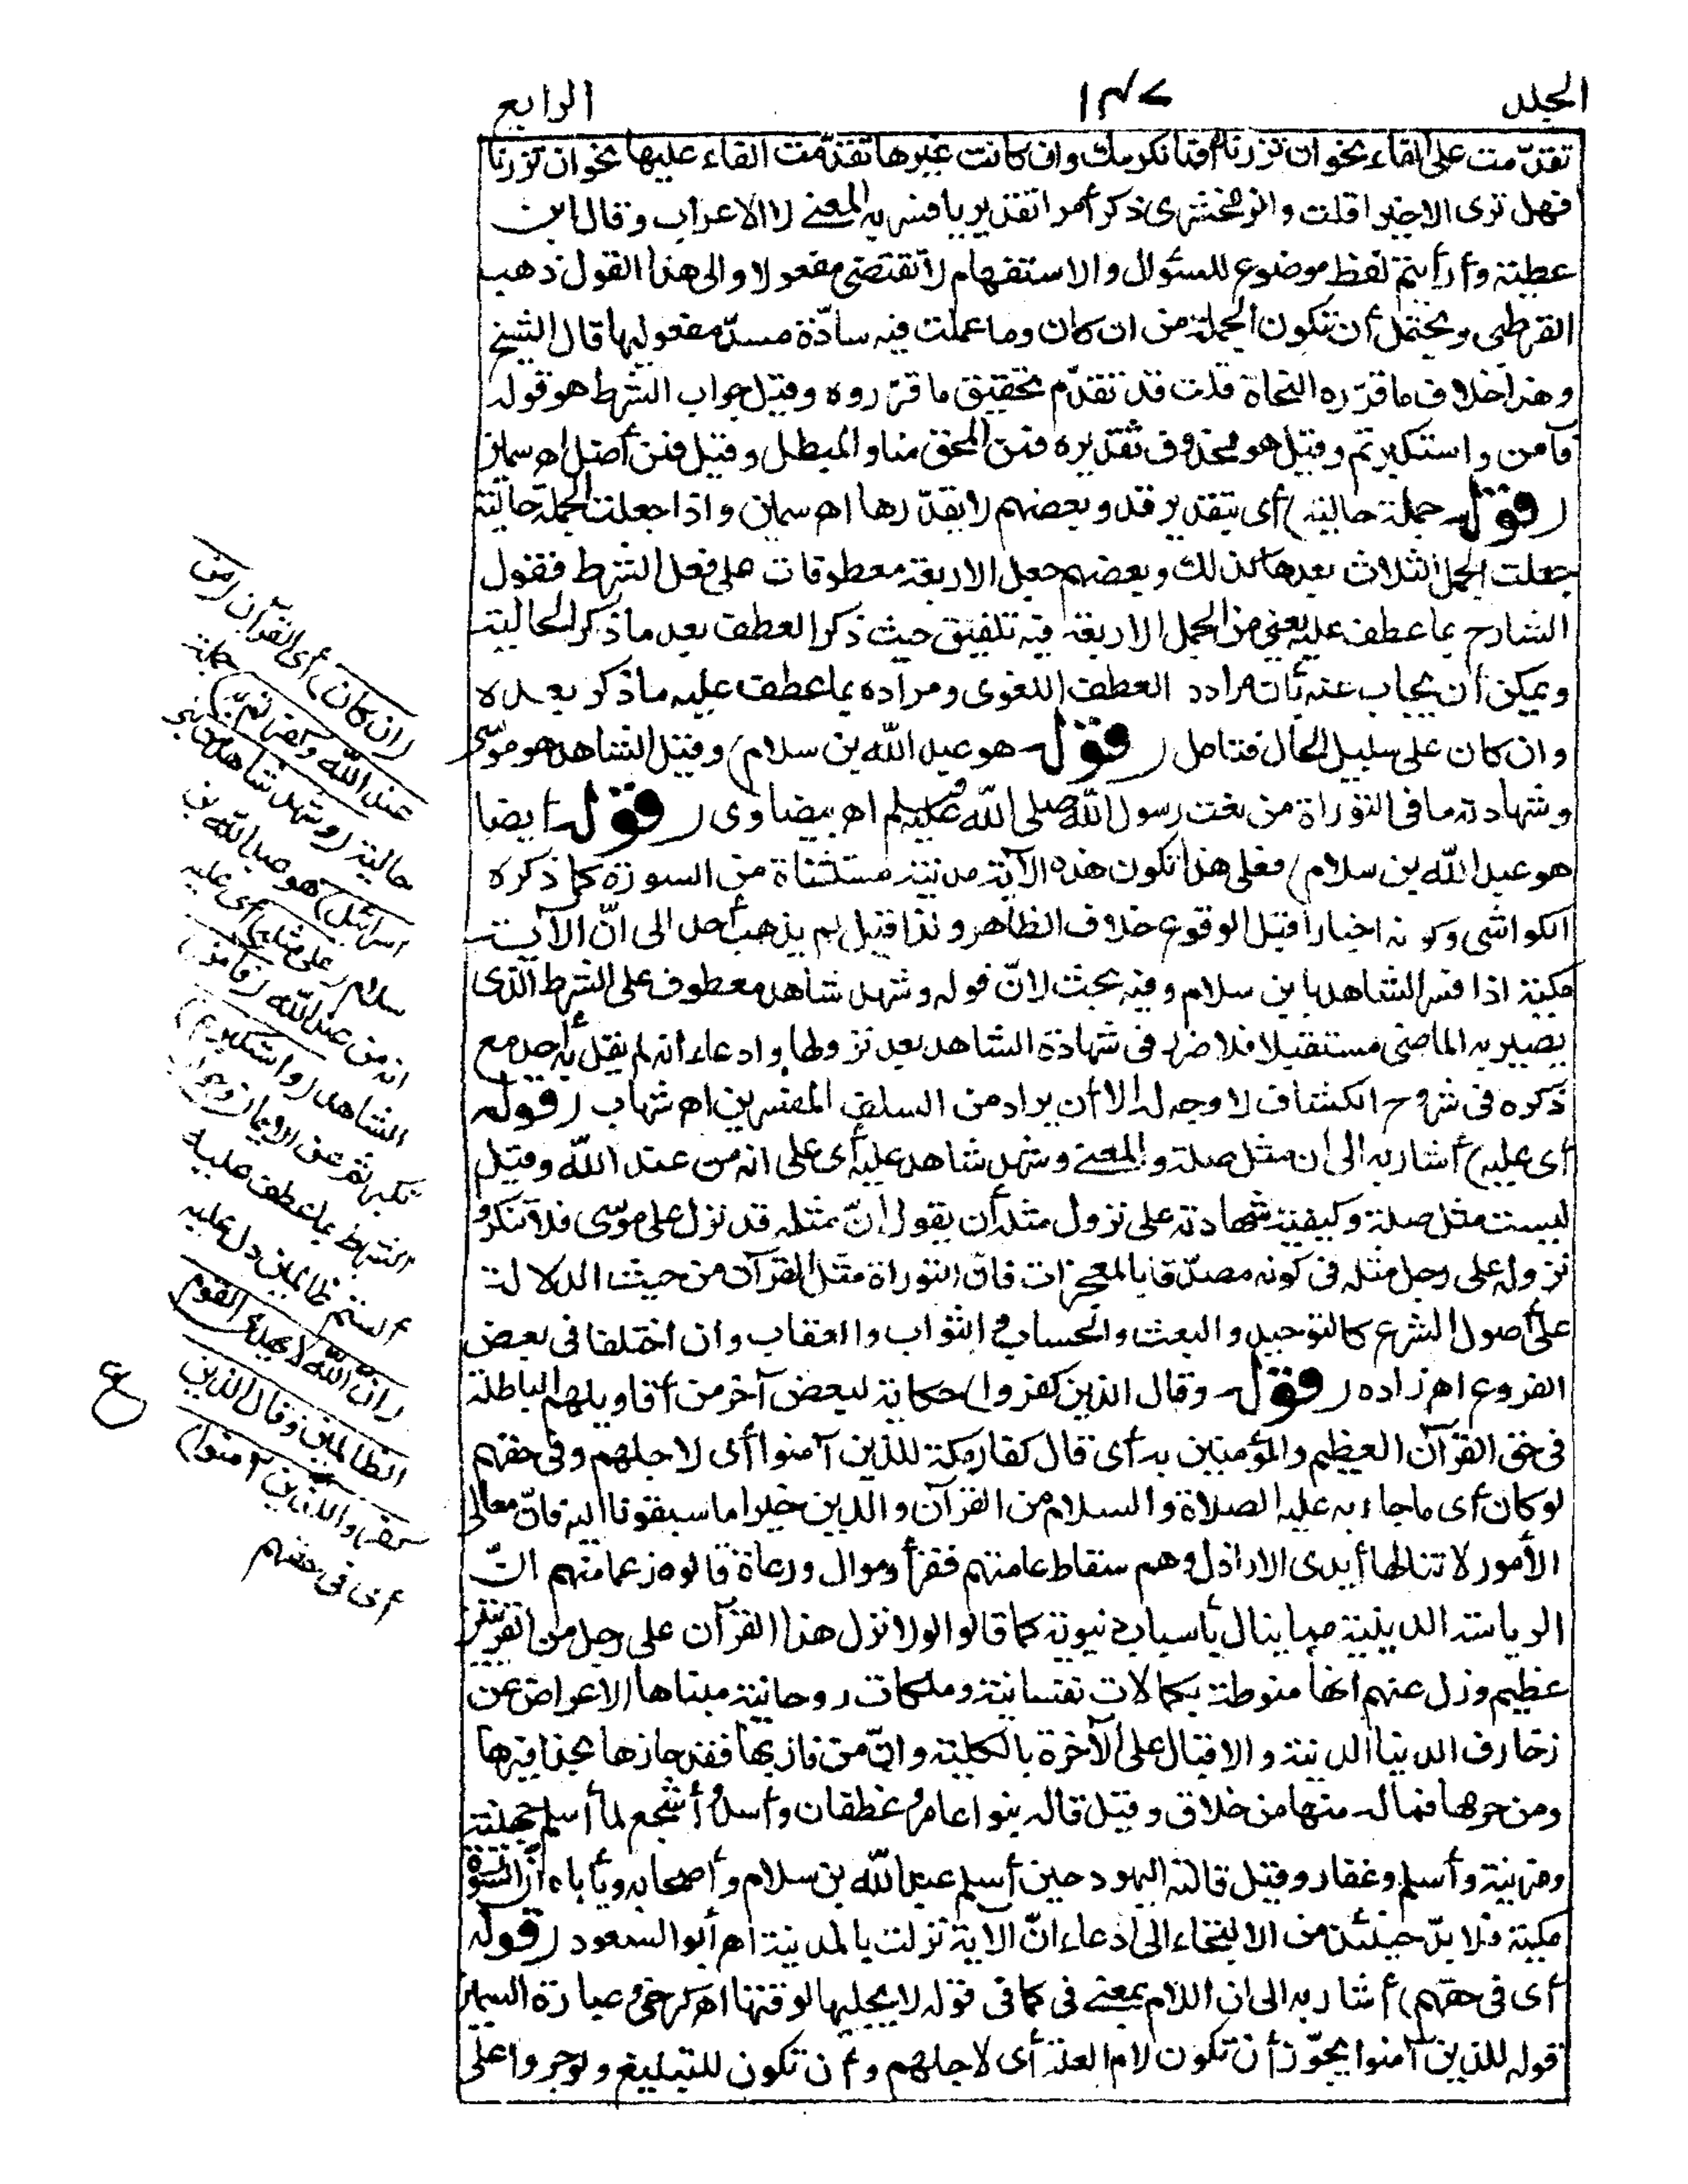 الجلد ١٣٧ الرابع
تقدّمت على الفاء نحو ان تزرنا أفما نكرمك وان كانت غيرها تقدّمت الفاء عليها نحو ان تزرنا
فهل ترى الا خيرا قلت والزمخشرى ذكر أمرا تقديريا فسر به المعنى لا الاعراب وقال ابن
عطية وأرأيتم لفظ موضوع للسؤال والاستفهام لا تقتضى مفعولا والى هذا القول ذهب
القرطبى ويحتمل أن تكون الجملة من ان كان وما عملت فيه سادّة مسدّ مفعوليها قال الشيخ
وهذا خلاف ما قرّره النحاة قلت قد تقدّم تحقيق ما قرّروه وقيل جواب الشرط هو قوله
فآمن واستكبرتم وقيل هو محذوف تقديره فمن المحق منا والمبطل وقيل فمن أضل اه سمين
(قوله جملة حالية) أى بتقدير قد وبعضهم لا يقدّرها اه سمين واذا جعلت الجملة حالية
جعلت الجمل الثلاث بعدها كذلك وبعضهم جعل الاربعة معطوفات على فعل الشرط فقول
الشارح بما عطف عليه يعنى من الجمل الاربعة فيه تلفيق حيث ذكر العطف بعد ما ذكر الحالية
ويمكن أن يجاب عنه بأن مراده العطف اللغوى ومراده بما عطف عليه ما ذكر بعده
وان كان على سبيل الحال فتامل (قوله هو عبد الله بن سلام) وقيل الشاهد هو موسى
وشهادته ما فى التوراة من نعت رسول الله صلى الله عليه وسلم اه بيضاوى (قوله أيضا
هو عبد الله بن سلام) فعلى هذا تكون هذه الآية مدنية مستثناة من السورة كما ذكره
الكواشى وكونه اخبارا قبل الوقوع خلاف الظاهر ولذا قيل لم يذهب أحد الى انّ الآية
مكية اذا فسر الشاهد بابن سلام وفيه بحث لانّ قوله وشهد شاهد معطوف على الشرط الذى
يصير به الماضى مستقبلا فلا ضرر فى شهادة الشاهد بعد نزولها وادعاء انه لم يقل به أحد مع
ذكره فى شروح الكشاف لا وجه له الا أن يراد من السلف المفسرين اه شهاب (قوله
أى عليه) أشار به الى ان مثل صلة والمعنى وشهد شاهد عليه أى على انه من عند الله وقيل
ليست مثل صلة وكيفية شهادته على نزول مثله أن يقول انّ مثله قد نزل على موسى فلا تنكروا
نزوله على رجل مثله فى كونه مصدّقا بالمعجزات فانّ التوراة مثل القرآن من حيث الدلالة
على أصول الشرع كالتوحيد والبعث والحساب والثواب والعقاب وان اختلفا فى بعض
الفروع اه زاده (قوله وقال الذين كفروا) حكاية لبعض آخر من أقاويلهم الباطلة
فى حق القرآن العظيم والمؤمنين به أى قال كفار مكة للذين آمنوا أى لاجلهم وفى حقهم
لو كان أى ما جاء به عليه الصلاة والسلام من القرآن والدين خيرا ما سبقونا اليه فانّ معالى
الأمور لا تنالها أيدى الاراذل وهم سقاط عامتهم فقراء وموال ورعاة قالوه زعما منهم انّ
الرياسة الدينية مما ينال بأسباب دنيوية كما قالوا لولا نزل هذا القرآن على رجل من القريتين
عظيم وزل عنهم انها منوطة بكمالات نفسانية وملكات روحانية مبناها الاعراض عن
زخارف الدنيا الدنية والاقبال على الآخرة بالكلية وانّ من فاز بها فقد حازها بحذافيرها
ومن حرمها فماله منها من خلاق وقيل قاله بنو اعامر وغطفان وأسد وأشجع لما أسلم جهينة
ومزينة وأسلم وغفار وقيل قالته اليهود حين أسلم عبد الله بن سلام وأصحابه ويأباه أن السورة
مكية فلا بدّ حينئذ من الالتجاء الى ادعاء انّ الاية نزلت بالمدينة اه أبو السعود (قوله
أى فى حقهم) أشار به الى ان اللام بمعنى فى كما فى قوله لا يجليها لوقتها اه كرخى وعبارة السمين
قوله للذين آمنوا يجوّز أن تكون لام العلة أى لاجلهم وأن تكون للتبليغ ولوجروا على
(ان كان) أى القرآن (من
عند الله وكفرتم به) جملة
حالية (وشهد شاهد من بنى
اسرائيل) هو عبد الله بن
سلام (على مثله) أى عليه
انه من عند الله (فآمن)
الشاهد (واستكبرتم)
تكبرتم عن الايمان وجواب
الشرط بما عطف عليه
ألستم ظالمين دل عليه
(انّ الله لا يهدى القوم
الظالمين وقال الذين
كفروا للذين آمنوا)
أى فى حقهم
ع